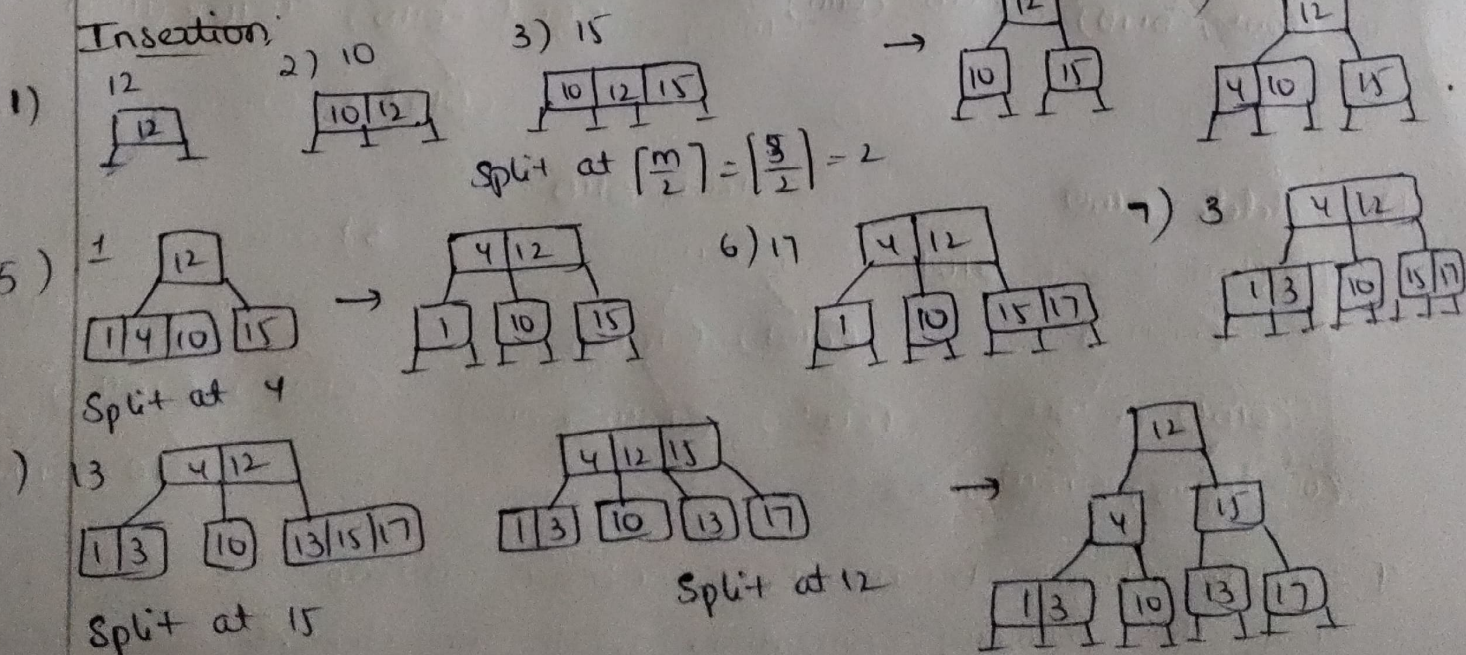 Insertion:
1) 12
12
2) 10
10 12
3) 15
10 12 15
Split at ⌈m/2⌉ = ⌈3/2⌉ = 2
→
12
10 15
12
4 10 15
5) 1
12
1 4 10 15
Split at 4
→
4 12
1 10 15
6) 17
4 12
1 10 15 17
7) 3
4 12
1 3 10 15 17
) 13
4 12
1 3 10 13 15 17
Split at 15
4 12 15
1 3 10 13 17
Split at 12
→
12
4 15
1 3 10 13 17